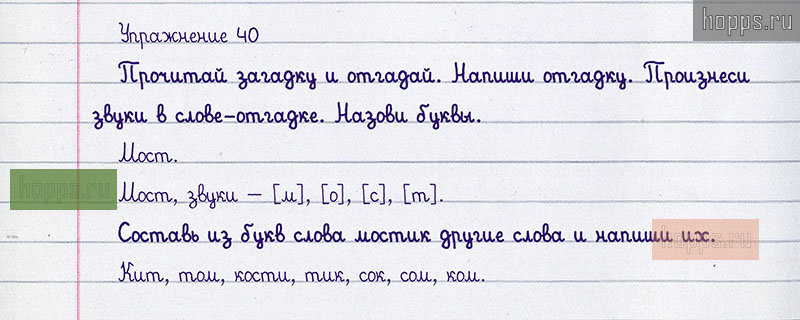 hopps.ru
Упражнение 40
Прочитай загадку и отгадай. Напиши отгадку. Произнеси
звуки в слове-отгадке. Назови буквы.
Мост.
hopps.ru
Мост, звуки – [м], [о], [с], [т].
Составь из букв слова мостик другие слова и напиши их.
hopps.ru
Кит, том, кости, тик, сок, сом, ком.